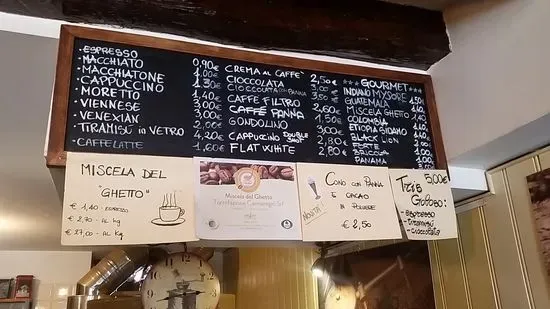 ESPRESSO 0,90€
MACCHIATO 1,00€
MACCHIATONE 1,30€
CAPPUCCINO 1,40€
MORETTO
VIENNESE
VENEXIAN
TIRAMISÙ IN VETRO 4,20€
CAFFELATTE 1,60€
CREMA AL CAFFÈ 2,50€
CIOCCOLATA
CIOCCOLATA CON PANNA
CAFFE FILTRO
CAFFÈ PANNA
GONDOLINO
CAPPUCCINO DOUBLE SHOT 2,80€
FLAT WHITE 2,80€
*** GOURMET ***
INDIANO MYSORE 1,50€
GUATEMALA
MISCELA GHETTO
COLOMBIA
ETIOPIA SIDAMO
BLACK LION
FORTE
BRICOLA
PANAMA
MISCELA DEL
"GHETTO"
€ 1,40 - ESPRESSO
€ 2,70 - AL hg
€ 27,00 - AL Kg
Miscela del Ghetto
Torrefazione Cannaregio Srl
CONO CON PANNA
E CACAO
IN POLVERE
NOVITA'
€ 2,50
5,00€
TRIS
GOLOSO:
- ESPRESSO
- TIRAMISÙ
- CIOCCOLATA